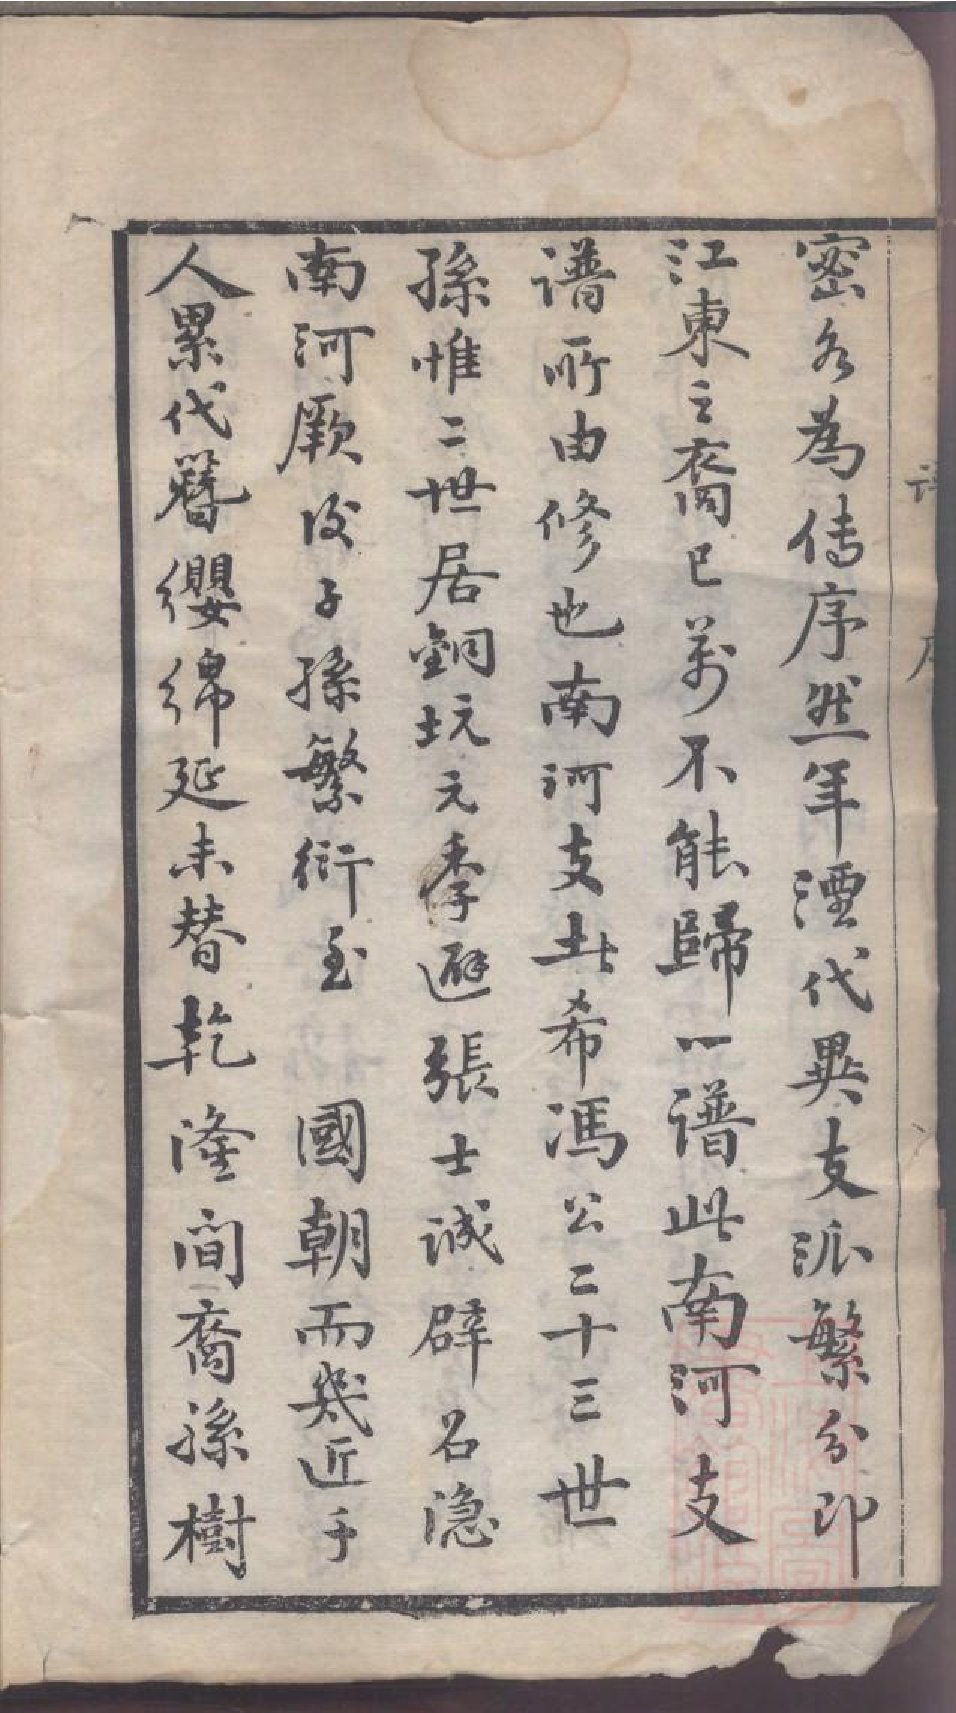 密名為傳序然年湮代異支派繁分即
江東之裔已萬不能歸一譜此南河支
譜所由修也南河支此希馮公二十三世
孫惟二世居銅坑元季避張士誠辟召隐
南河厥後子孫繁衍至 國朝而幾近千
人累代簪纓綿延未替乾隆間裔孫樹
譜 序